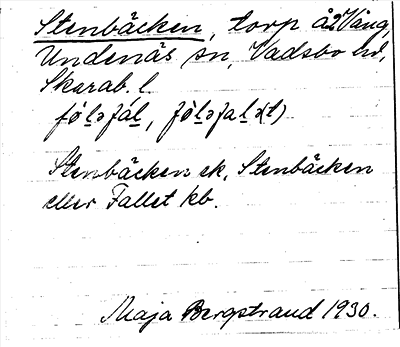 Stenbäcken, torp å Vång,
Undenäs sn, Vadsbo hd,
Skarab. l.
Stenbäcken ek, Stenbäcken
eller Fallet kb.
Maja Bergstrand 1930.